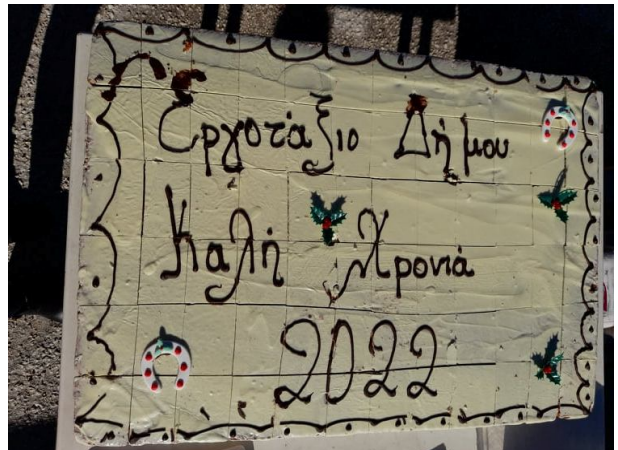 Εργοτάξιο Δήμου
Καλή Χρονιά
2022